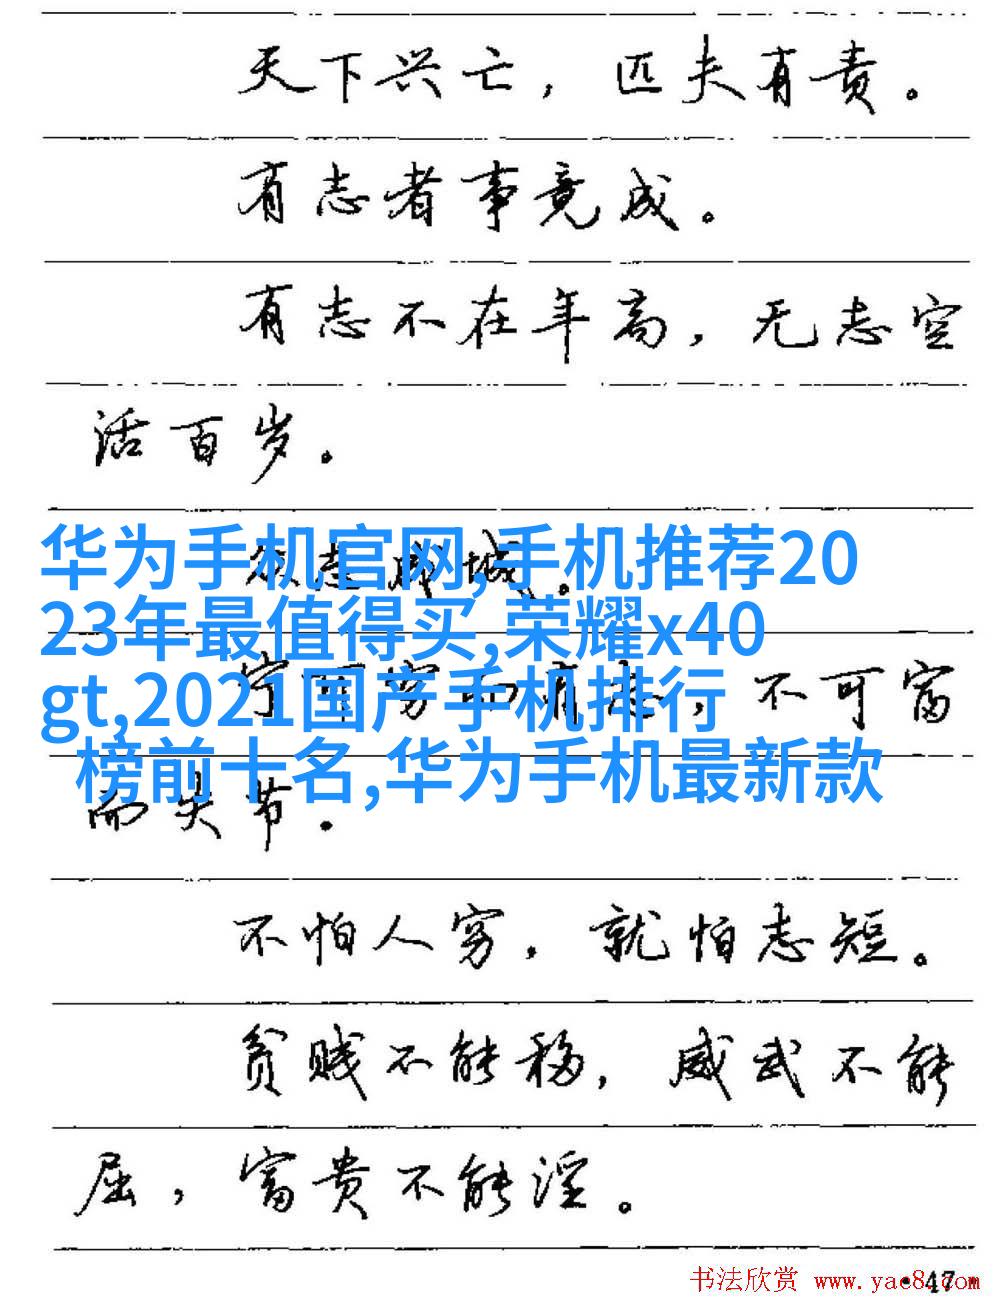 天下兴亡，匹夫有责。
有志者事竟成。
有志不在年高，无志空
活百岁。
众志成城。
华为手机官网,手机推荐20
23年最值得买,荣耀x40
宁可穷而有志，不可富
gt,2021国产手机排行
榜前十名,华为手机最新款
而失节．
不怕人穷．就怕志短。
贫贱不能移，威武不能
屈，富贵不能淫。
书法欣赏 www.yac8.com
·47·